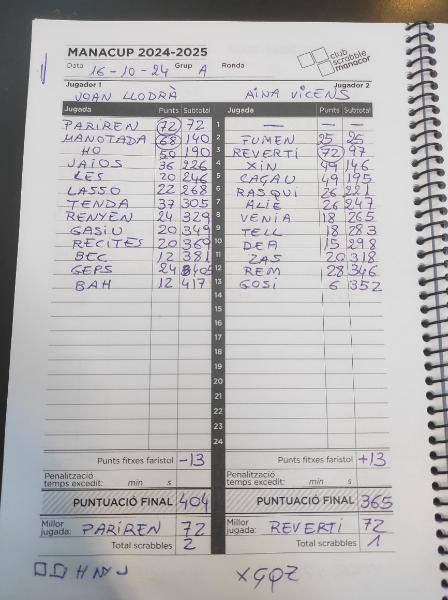 MANACUP 2024-2025
club scrabble manacor
Data 16-10-24 Grup A Ronda
Jugador 1 Jugador 2
JOAN LLODRÀ AINA VICENS
Jugada Punts Subtotal Jugada Punts Subtotal
PARIREN 72 72 1 — — —
MANOTADA 68 140 2 FUMEN 25 25
HO 50 190 3 REVERTI 72 97
JAIOS 36 226 4 XIN 49 146
LES 20 246 5 CAGAU 49 195
LASSO 22 268 6 RASQUI 26 221
TENDA 37 305 7 ALIE 26 247
RENYEN 24 329 8 VENIA 18 265
GASIU 20 349 9 TELL 18 283
RECITES 20 369 10 DEA 15 298
BEC 12 381 11 ZAS 20 318
GEPS 24 405 12 REM 28 346
BAH 12 417 13 GOSI 6 352
14
15
16
17
18
19
20
21
22
23
24
Punts fitxes faristol -13 Punts fitxes faristol +13
Penalització temps excedit: min s Penalització temps excedit: min s
PUNTUACIÓ FINAL 404 PUNTUACIÓ FINAL 365
Millor jugada: PARIREN 72 Millor jugada: REVERTI 72
Total scrabbles 2 Total scrabbles 1